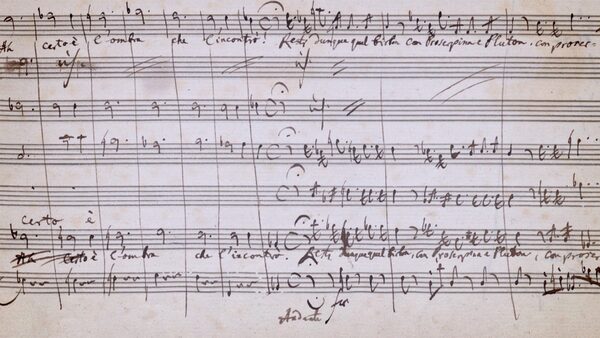 Ah certo è l'ombra che l'incontrò! Resti dunque quel birbon con Proserpina e Pluton, con proser-
certo è
Ah certo è l'ombra che l'incontrò. Resti dunque quel birbon, con Proserpina e Pluton, con proser
for
Andante